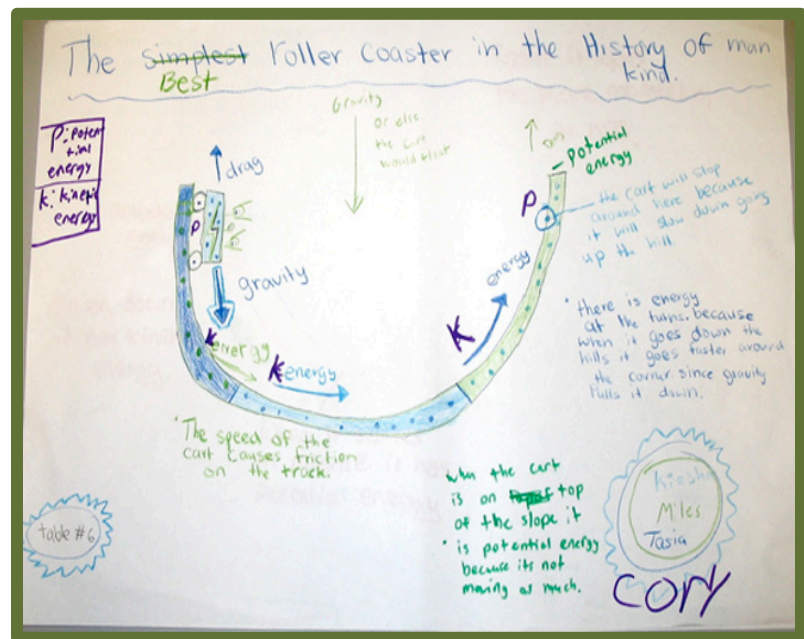 The simplest roller coaster in the History of man
Best
kind.
P: Poten
tial
energy
K: kinetic
energy
Gravity
or else
the cart
would float
drag
P
gravity
K energy
K energy
K
energy
P
Potential
energy
the cart will stop
around here because
it will slow down going
up the hill.
• there is energy
at the turns. because
when it goes down the
hills it goes faster around
the corner since gravity
Pulls it down.
• The speed of the
cart causes friction
on the track.
when the cart
is on top
of the slope it
• is potential energy
because its not
moving as much.
table #6
Kiesha
Miles
Tasia
Cory